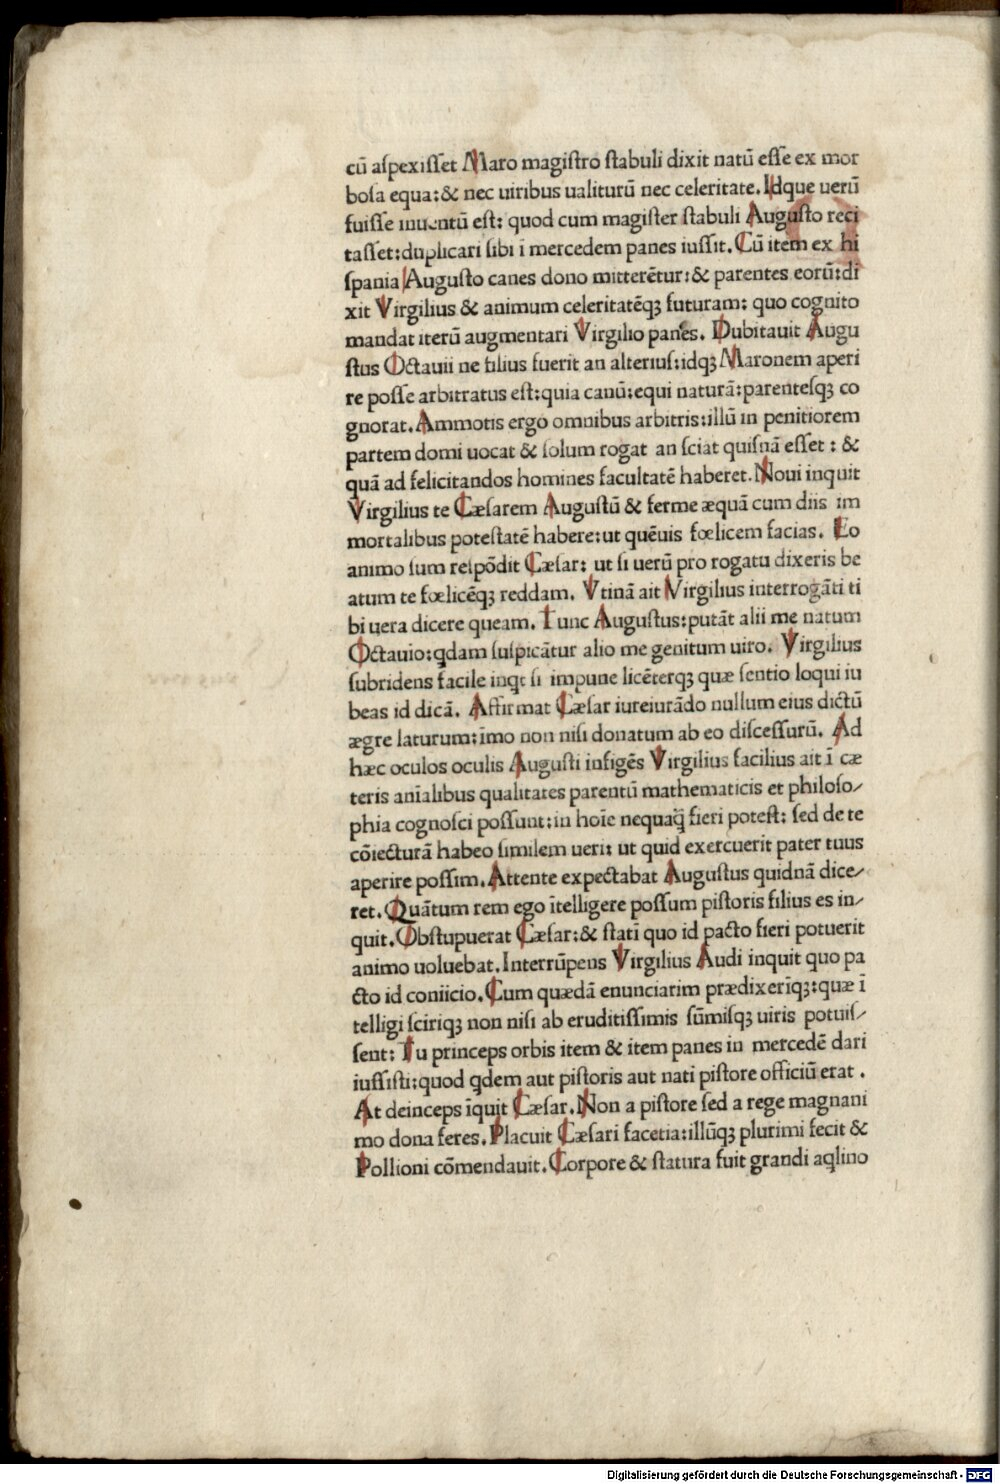 cū aſpexiſſet Maro magiſtro ſtabuli dixit natū eſſe ex mor
boſa equa:& nec uiribus ualiturū nec celeritate. Idque uerū
fuiſſe inuentū eſt: quod cum magiſter ſtabuli Auguſto reci
taſſet:duplicari ſibi ī mercedem panes iuſſit. Cū item ex hi
ſpania Auguſto canes dono mitterētur:& parentes eorū:di
xit Virgilius & animum celeritatēqꝫ futuram: quo cognito
mandat iterū augmentari Virgilio panes. Dubitauit Augu
ſtus Octauii ne filius fuerit an alterius:idqꝫ Maronem aperi
re poſſe arbitratus eſt:quia canū:equi naturā:parenteſqꝫ co
gnorat. Ammotis ergo omnibus arbitris:illū in penitiorem
partem domi uocat & ſolum rogat an ſciat quiſnā eſſet : &
quā ad felicitandos homines facultatē haberet. Noui inquit
Virgilius te Cæſarem Auguſtū & ferme æquā cum diis im
mortalibus poteſtatē habere:ut quēuis fœlicem facias. Eo
animo ſum reſpōdit Cæſar: ut ſi uerū pro rogatu dixeris be
atum te fœlicēqꝫ reddam. Vtinā ait Virgilius interrogāti ti
bi uera dicere queam. Tunc Auguſtus:putāt alii me natum
Octauio:qdam ſuſpicātur alio me genitum uiro. Virgilius
ſubridens facile inqt ſi impune licēterqꝫ quæ ſentio loqui iu
beas id dicā. Affirmat Cæſar iureiurādo nullum eius dictū
ægre laturum:īmo non niſi donatum ab eo diſceſſurū. Ad
hæc oculos oculis Auguſti infigēs Virgilius facilius ait ī cæ
teris anīalibus qualitates parentū mathematicis et philoſo⸗
phia cognoſci poſſunt:in hoīe nequaq̄ fieri poteſt: ſed de te
cōiecturā habeo ſimilem ueri: ut quid exercuerit pater tuus
aperire poſſim. Attente expectabat Auguſtus quidnā dice⸗
ret. Quātum rem ego ītelligere poſſum piſtoris filius es in⸗
quit. Obſtupuerat Cæſar:& ſtatī quo id pacto fieri potuerit
animo uoluebat. Interrūpens Virgilius Audi inquit quo pa
cto id coniicio. Cum quædā enunciarim prædixerīqꝫ:quæ ī
telligi ſciriqꝫ non niſi ab eruditiſſimis ſūmiſqꝫ uiris potuiſ⸗
ſent: Tu princeps orbis item & item panes in mercedē dari
iuſſiſti:quod qdem aut piſtoris aut nati piſtore officiū erat .
At deinceps īquit Cæſar. Non a piſtore ſed a rege magnani
mo dona feres. Placuit Cæſari facetia:illūqꝫ plurimi fecit &
Pollioni cōmendauit. Corpore & ſtatura fuit grandi aqlino
Digitalisierung gefördert durch die Deutsche Forschungsgemeinschaft - DFG